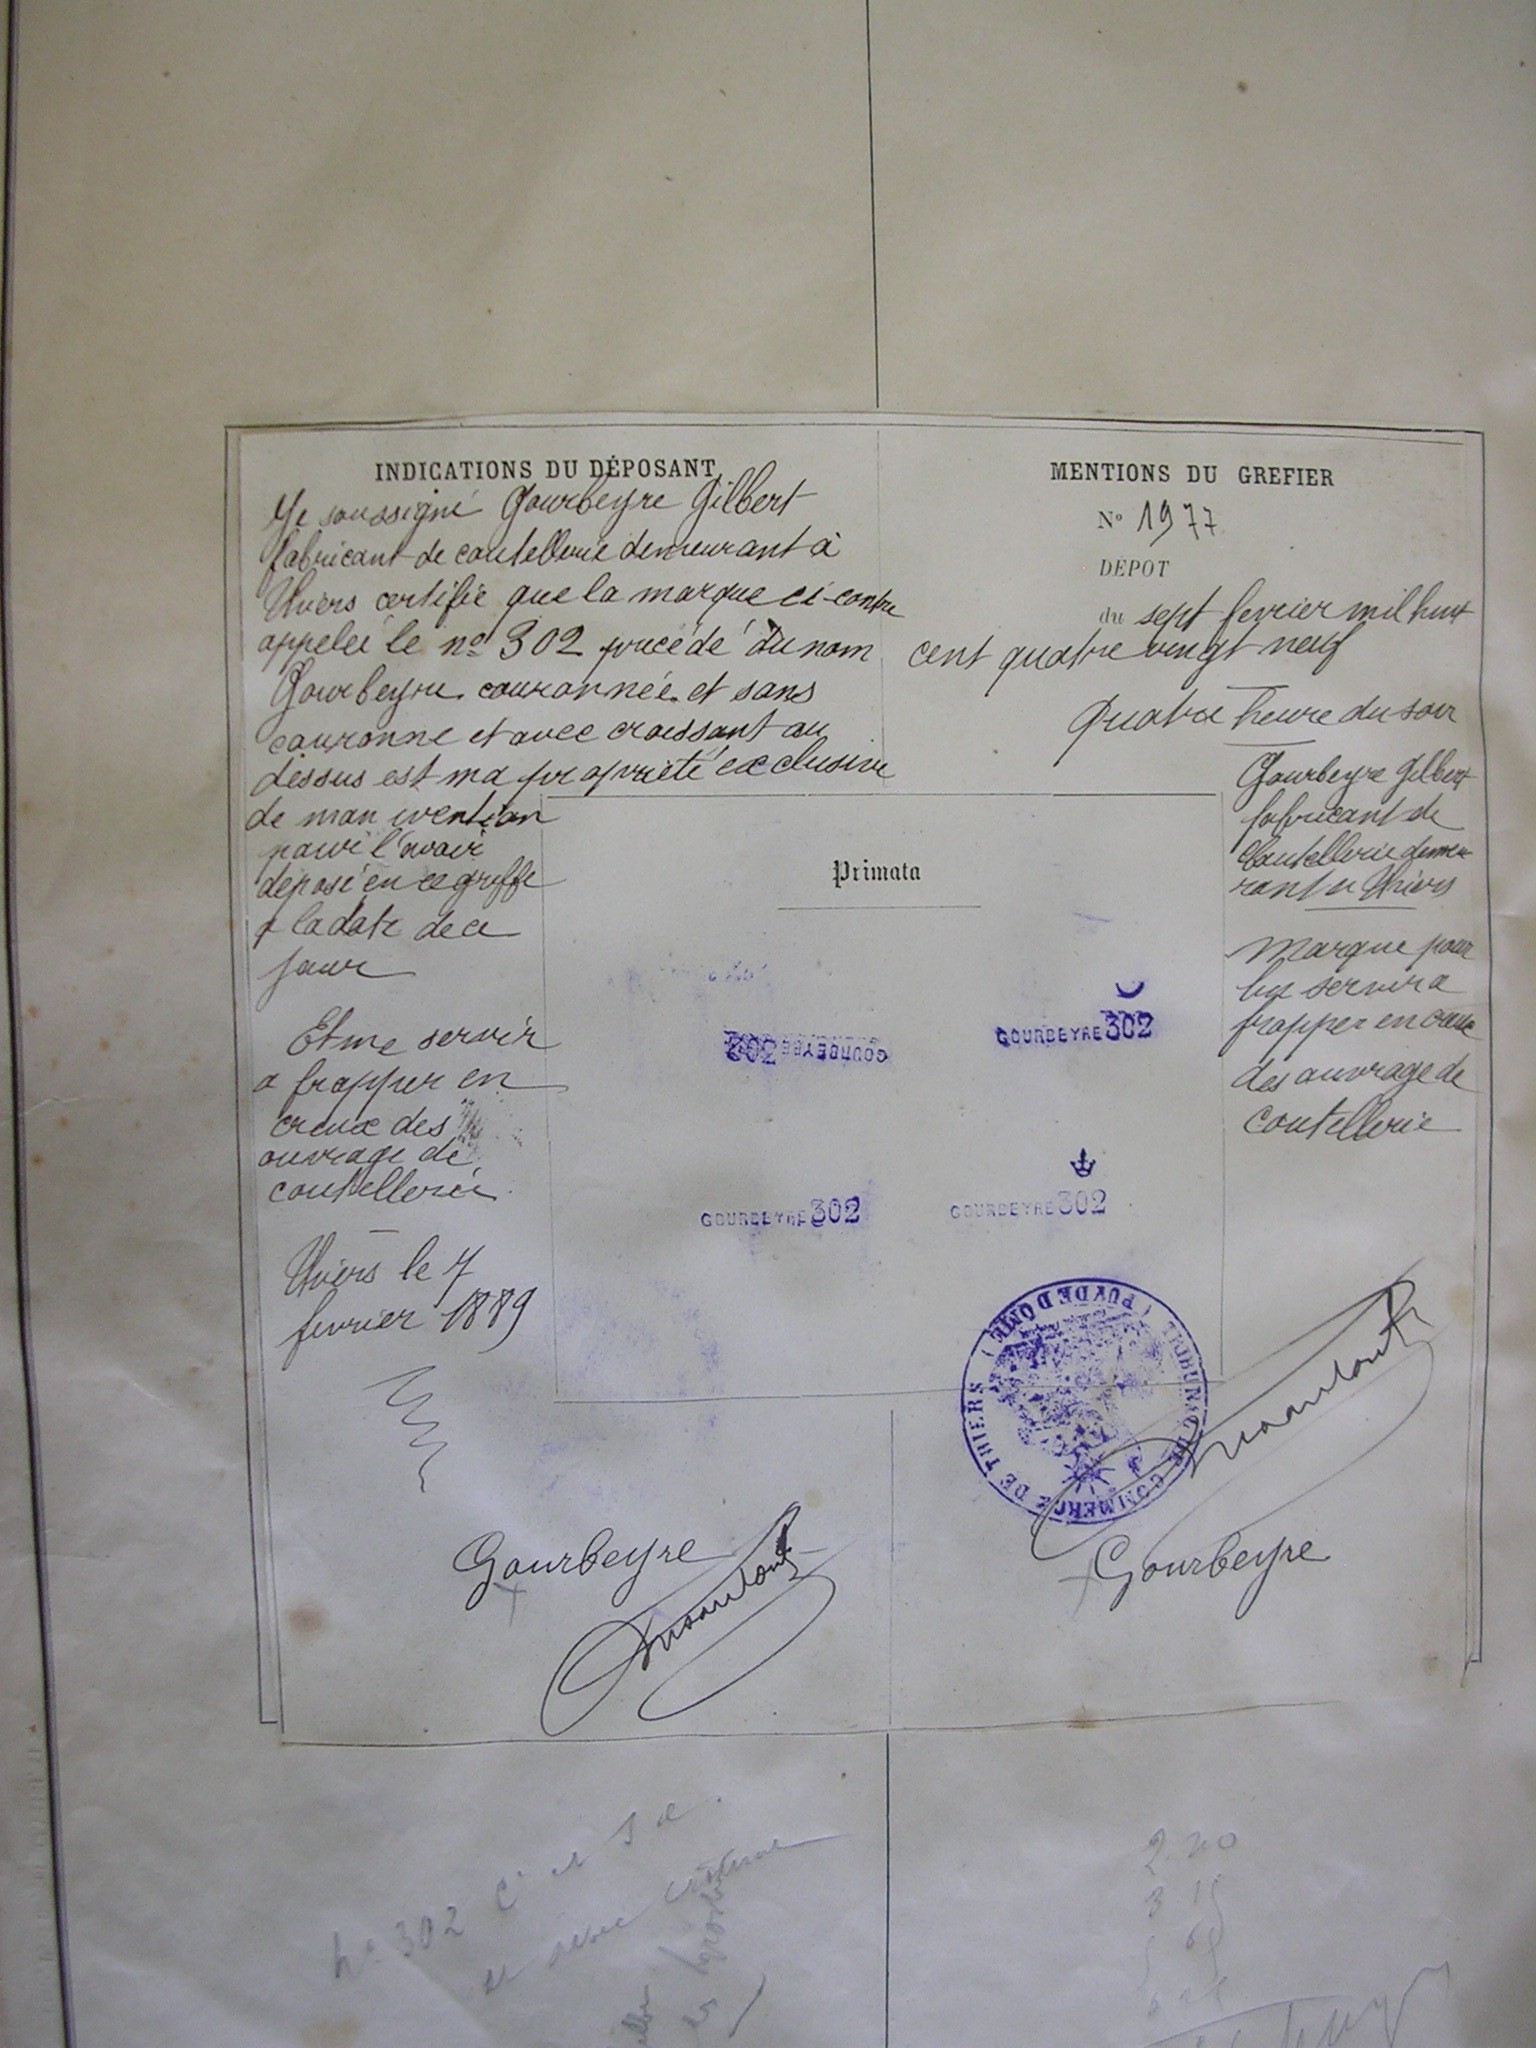 INDICATIONS DU DÉPOSANT
Je soussigné Gourbeyre Gilbert
fabricant de coutellerie demeurant à
Thiers certifie que la marque ci-contre
appelée le nº 302 précédé du nom
Gourbeyre couronnée et sans
couronne et avec croissant au
dessus est ma propriété exclusive
de mon invention
pour l'avoir
déposé en ce greffe
a la date de ce
jour
Et me servir
a frapper en
creux des
ouvrage de
coutellerie
Thiers le 7
fevrier 1889
Gourbeyre
MENTIONS DU GREFIER
Nº 1977
DÉPOT
du sept fevrier mil huit
cent quatre vingt neuf
Quatre heure du soir
Gourbeyre Gilbert
fabricant de
Coutellerie demeu
rant a Thiers
Marque pour
lui servir a
frapper en creux
des ouvrage de
coutellerie
Primata
GOURBEYRE 302
GOURBEYRE 302
GOURBEYRE 302
GOURBEYRE 302
TRIBUNAL DE COMMERCE DE THIERS (PUY DE DOME)
Gourbeyre
nº 302